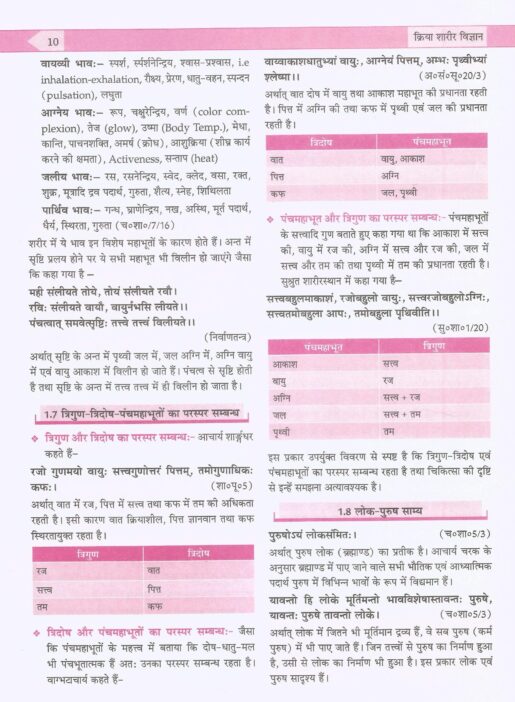 10
क्रिया शारीर विज्ञान
वायव्यी भाव:– स्पर्श, स्पर्शनेन्द्रिय, श्वास-प्रश्वास, i.e
inhalation-exhalation, रौक्ष्य, प्रेरण, धातु-वहन, स्पन्दन
(pulsation), लघुता
आग्नेय भाव:– रूप, चक्षुरेन्द्रिय, वर्ण (color com-
plexion), तेज (glow), उष्मा (Body Temp.), मेधा,
कान्ति, पाचनशक्ति, अमर्ष (क्रोध), आशुक्रिया (शीघ्र कार्य
करने की क्षमता), Activeness, सन्ताप (heat)
जलीय भाव:– रस, रसनेन्द्रिय, स्वेद, क्लेद, वसा, रक्त,
शुक्र, मूत्रादि द्रव पदार्थ, गुरुता, शैत्य, स्नेह, शिथिलता
पार्थिव भाव:– गन्ध, घ्राणेन्द्रिय, नख, अस्थि, मूर्त पदार्थ,
धैर्य, स्थिरता, गुरुता (च०शा०/7/16)
शरीर में ये भाव इन विशेष महाभूतों के कारण होते हैं। अन्त में
सृष्टि प्रलय होने पर ये सभी महाभूत भी विलीन हो जाएंगे जैसा
कि कहा गया है –
मही संलीयते तोये, तोयं संलीयते रवौ।
रवि: संलीयते वायौ, वायुर्नभसि लीयते।।
पंचत्वात् समवेत्सृष्टि: तत्त्वे तत्त्वं विलीयते।।
(निर्वाणतन्त्र)
अर्थात् सृष्टि के अन्त में पृथ्वी जल में, जल अग्नि में, अग्नि वायु
में एवं वायु आकाश में विलीन हो जाते हैं। पंचत्व से सृष्टि होती
है तथा सृष्टि के अन्त में तत्त्व तत्त्व में ही विलीन हो जाता है।
1.7 त्रिगुण-त्रिदोष-पंचमहाभूतों का परस्पर सम्बन्ध
❖ त्रिगुण और त्रिदोष का परस्पर सम्बन्ध:– आचार्य शार्ङ्गधर
कहते हैं–
रजो गुणमयो वायु: सत्त्वगुणोत्तरं पित्तम्, तमोगुणाधिक:
कफ:। (शा०पू०5)
अर्थात् वात में रज, पित्त में सत्त्व तथा कफ में तम की अधिकता
रहती है। इसी कारण वात क्रियाशील, पित्त ज्ञानवान तथा कफ
स्थिरतायुक्त रहता है।
त्रिगुण त्रिदोष
रज वात
सत्त्व पित्त
तम कफ
❖ त्रिदोष और पंचमहाभूतों का परस्पर सम्बन्ध:– जैसा
कि पंचमहाभूतों के महत्त्व में बताया कि दोष-धातु-मल
भी पंचभूतात्मक हैं अत: उनका परस्पर सम्बन्ध रहता है।
वाग्भटाचार्य कहते हैं-
वाय्वाकाशधातुभ्यां वायु:, आग्नेयं पित्तम्, अम्भ: पृथ्वीभ्यां
श्लेष्मा।। (अ०सं०सू०20/3)
अर्थात् वात दोष में वायु तथा आकाश महाभूत की प्रधानता रहती
है। पित्त में अग्नि की तथा कफ में पृथ्वी एवं जल की प्रधानता
रहती है।
त्रिदोष पंचमहाभूत
वात वायु, आकाश
पित्त अग्नि
कफ जल, पृथ्वी
❖ पंचमहाभूत और त्रिगुण का परस्पर सम्बन्ध:- पंचमहाभूतों
के सत्त्वादि गुण बताते हुए कहा गया था कि आकाश में सत्त्व
की, वायु में रज की, अग्नि में सत्त्व और रज की, जल में
सत्त्व और तम की तथा पृथ्वी में तम की प्रधानता रहती है।
सुश्रुत शारीरस्थान में कहा गया है–
सत्त्वबहुलमाकाशं, रजोबहुलो वायु:, सत्त्वरजोबहुलोऽग्नि:,
सत्त्वतमोबहुला आप:, तमोबहुला पृथिवीति।।
(सु०शा०1/20)
पंचमहाभूत त्रिगुण
आकाश सत्त्व
वायु रज
अग्नि सत्त्व + रज
जल सत्त्व + तम
पृथ्वी तम
इस प्रकार उपर्युक्त विवरण से स्पष्ट है कि त्रिगुण-त्रिदोष एवं
पंचमहाभूतों का परस्पर सम्बन्ध रहता है तथा चिकित्सा की दृष्टि
से इन्हें समझना अत्यावश्यक है।
1.8 लोक-पुरुष साम्य
पुरुषोऽयं लोकसंमित:। (च०शा०5/3)
अर्थात् पुरुष लोक (ब्रह्माण्ड) का प्रतीक है। आचार्य चरक के
अनुसार ब्रह्माण्ड में पाए जाने वाले सभी भौतिक एवं आध्यात्मिक
पदार्थ पुरुष में विभिन्न भावों के रूप में विद्यमान हैं।
यावन्तो हि लोके मूर्तिमन्तो भावविशेषास्तावन्त: पुरुषे,
यावन्त: पुरुषे तावन्तो लोके। (च०शा०5/3)
अर्थात् लोक में जितने भी मूर्तिमान द्रव्य हैं, वे सब पुरुष (कर्म
पुरुष) में भी पाए जाते हैं। जिन तत्त्वों से पुरुष का निर्माण हुआ
है, उसी से लोक का निर्माण भी हुआ है। इस प्रकार लोक एवं
पुरुष सादृश्य हैं।